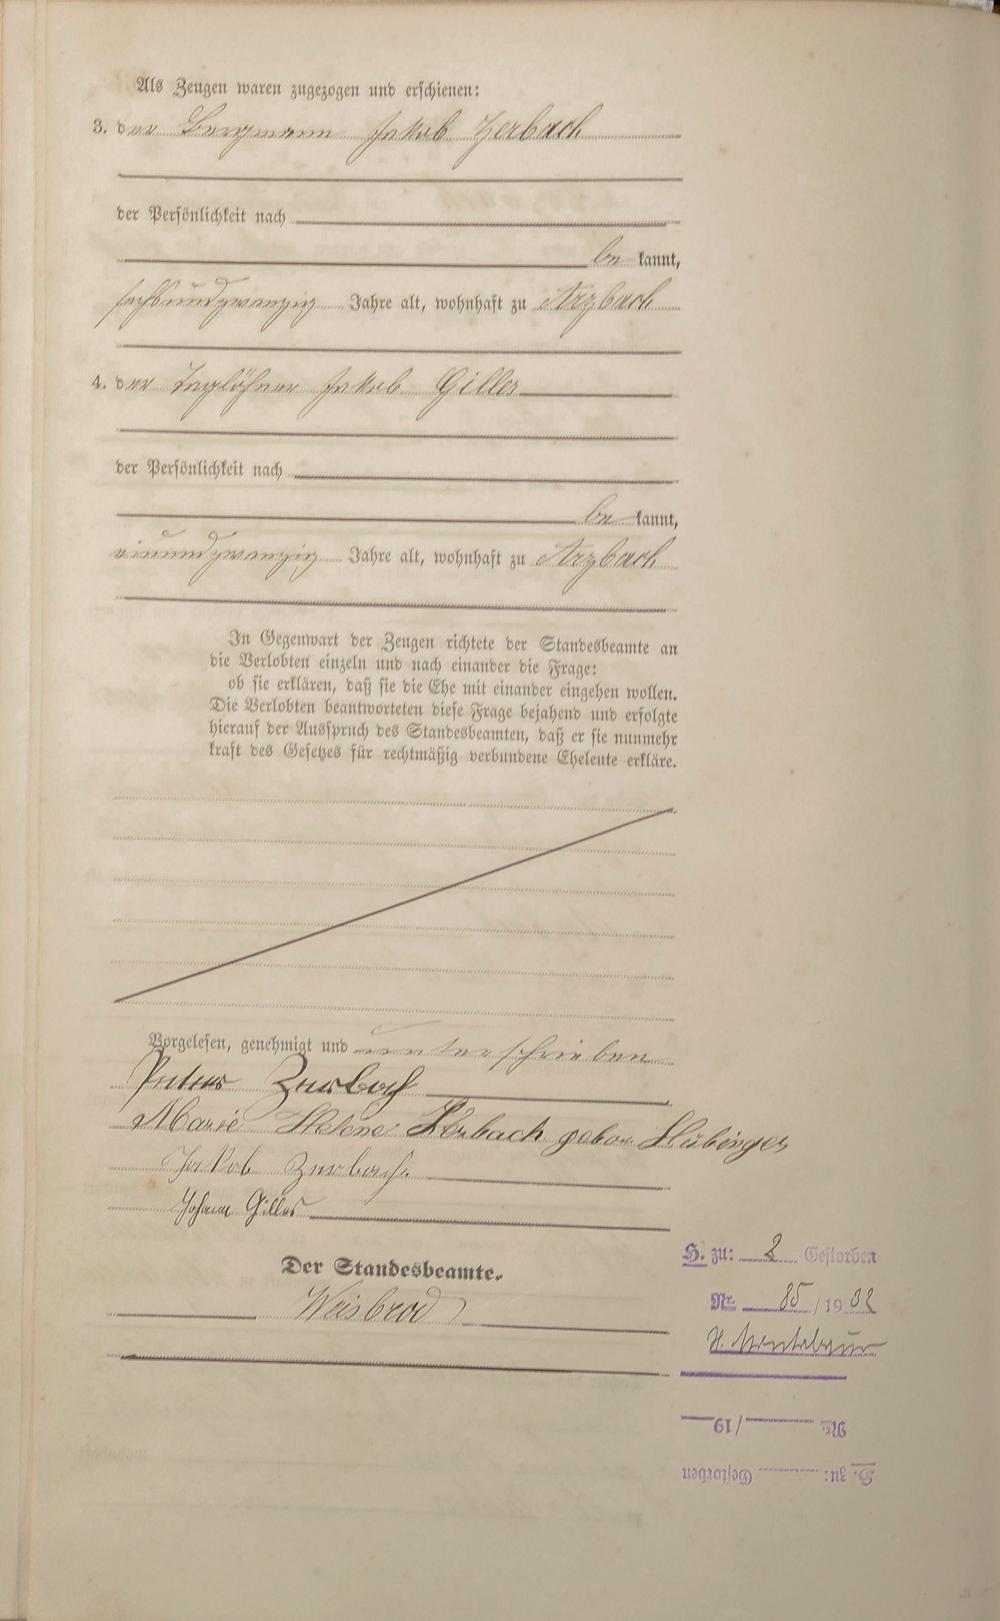 Als Zeugen waren zugezogen und erschienen:
3. der Bergmann Jakob Zerbach
der Persönlichkeit nach
be kannt,
sechsundzwanzig Jahre alt, wohnhaft zu Arzbach
4. der Taglöhner Jakob Gilles
der Persönlichkeit nach
be kannt,
einundzwanzig Jahre alt, wohnhaft zu Arzbach
In Gegenwart der Zeugen richtete der Standesbeamte an
die Verlobten einzeln und nach einander die Frage:
ob sie erklären, daß sie die Ehe mit einander eingehen wollen.
Die Verlobten beantworteten diese Frage bejahend und erfolgte
hierauf der Ausspruch des Standesbeamten, daß er sie nunmehr
kraft des Gesetzes für rechtmäßig verbundene Eheleute erkläre.
Vorgelesen, genehmigt und unterschrieben
Peter Zerbach
Marie Helene Zerbach gebor. Hübinger
Jakob Zerbach
Johann Gilles
Der Standesbeamte.
Weisbrod
H. zu: 2 Gestorben
Nr. 85/1932
St. Montabaur
Nr. /19
H. zu: Gestorben